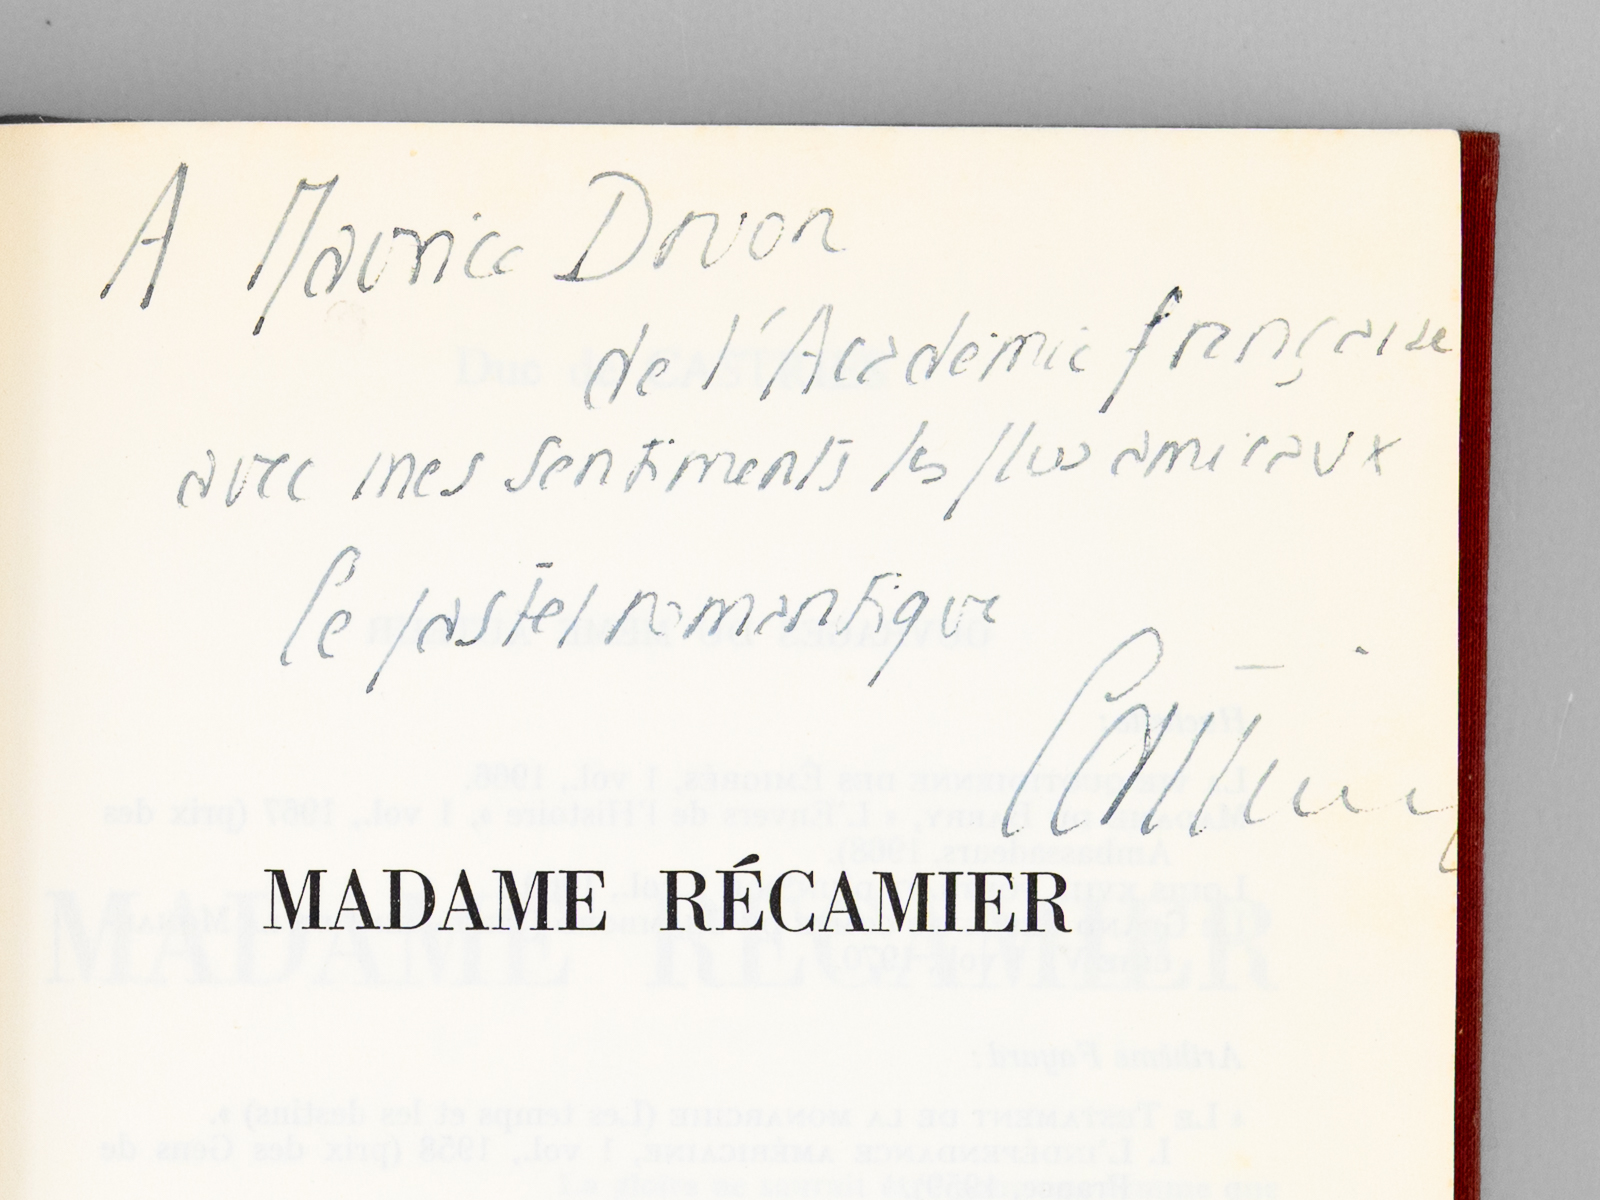 A Maurice Druon
de l'Académie française
avec mes sentiments les plus amicaux
Ce pastel romantique
Castries
MADAME RÉCAMIER